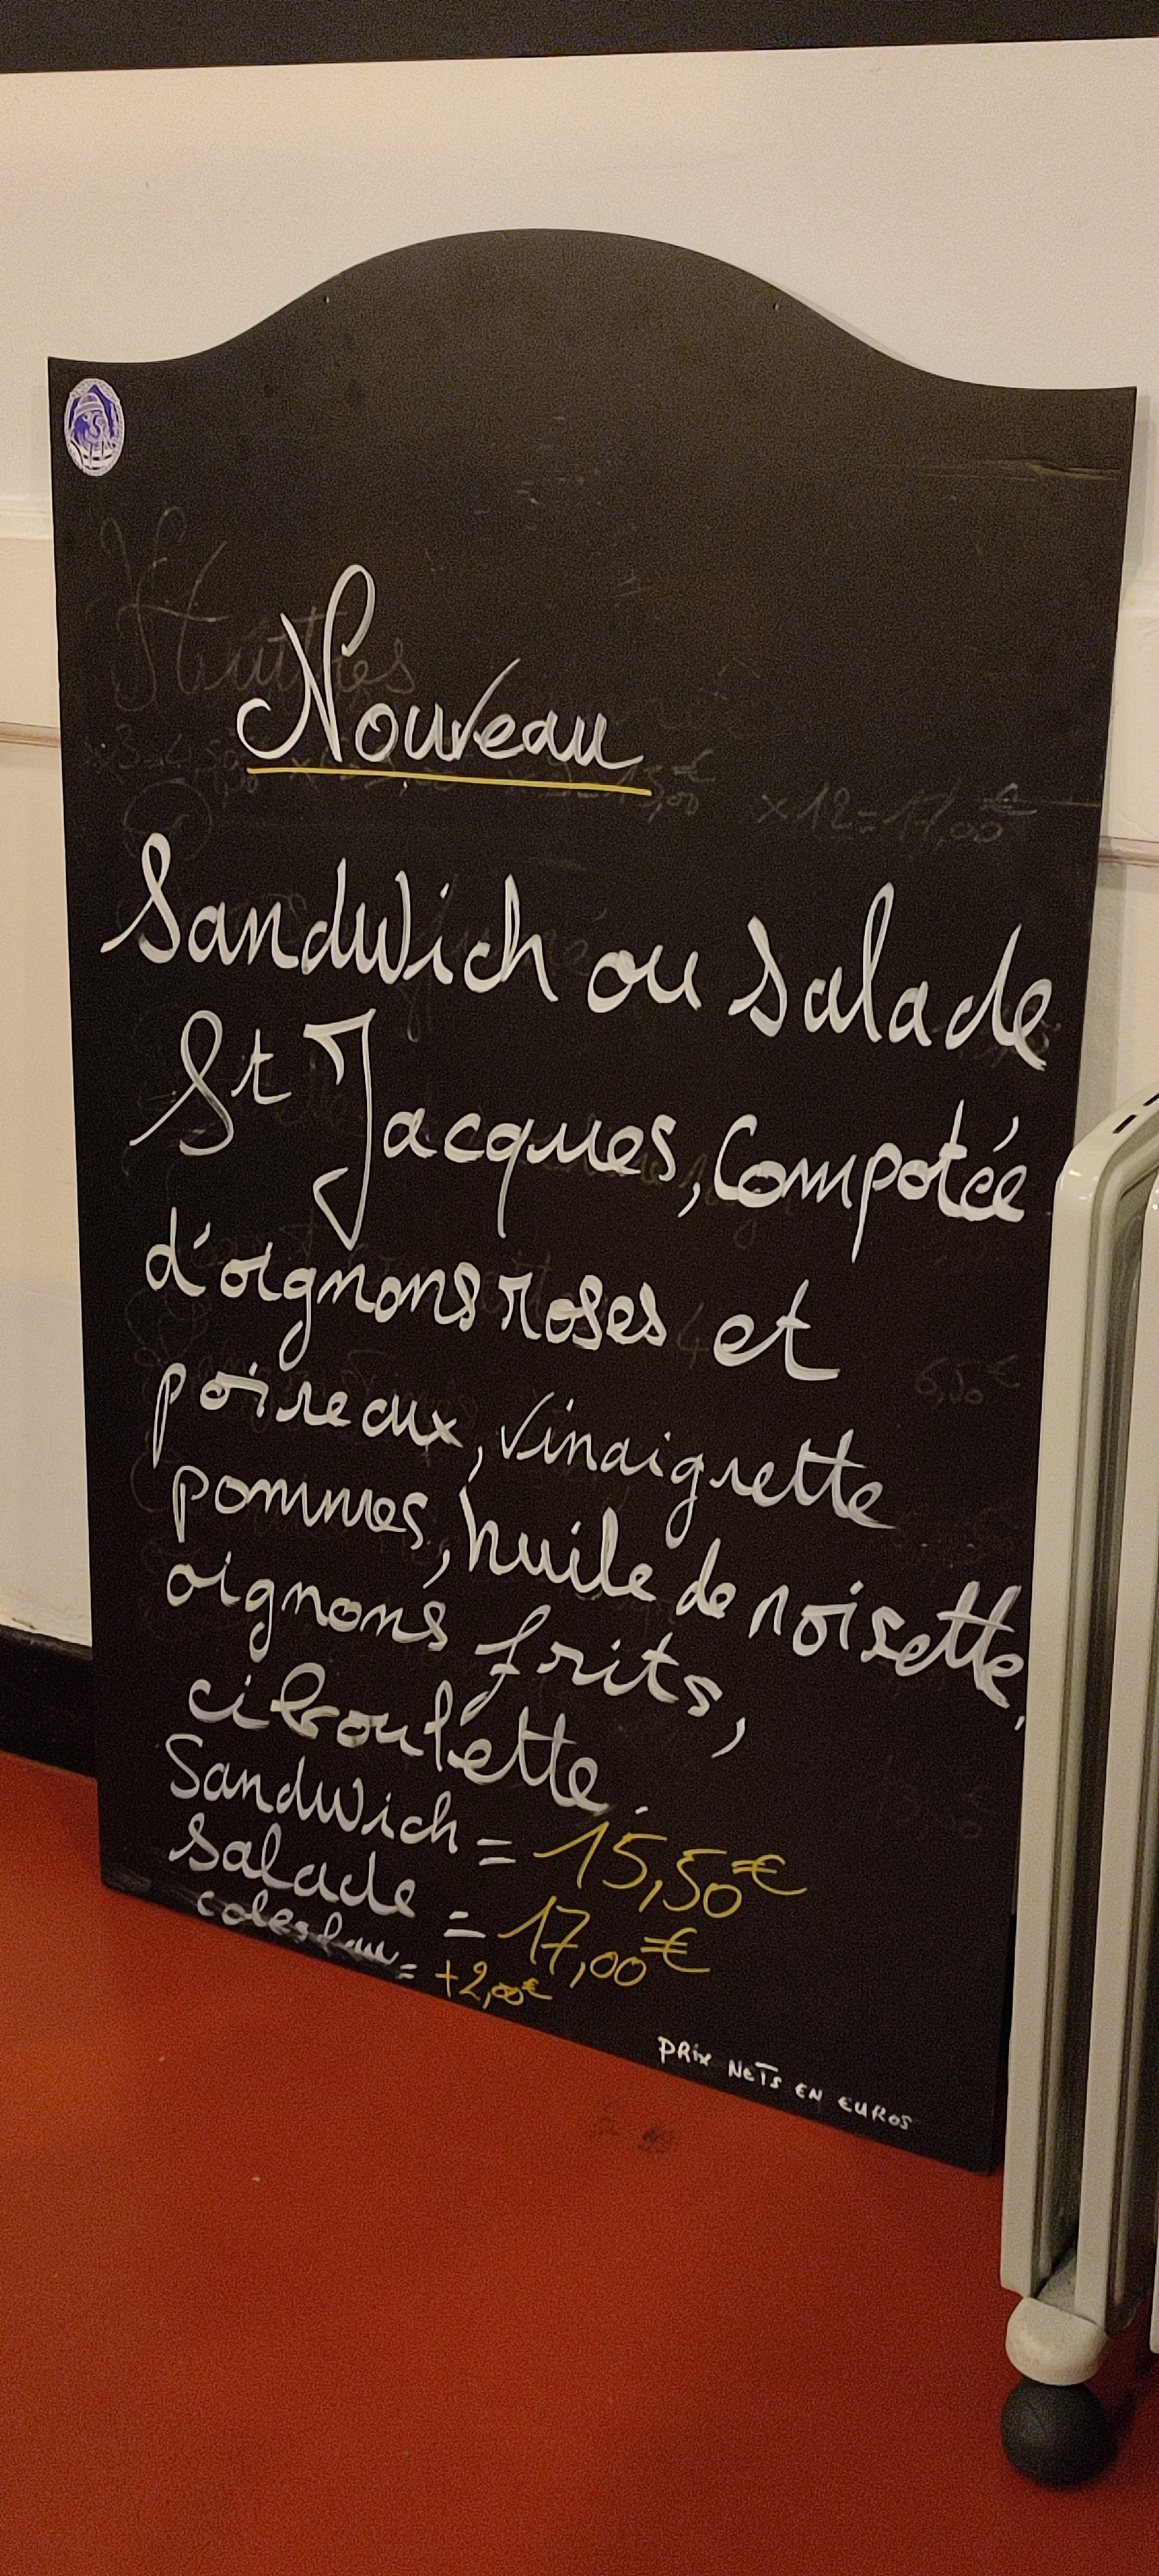 Nouveau
Sandwich ou Salade
St Jacques, Compotée
d'oignons roses et
poireaux, vinaigrette
pommes, huile de noisette,
oignons frits,
ciboulette.
Sandwich = 15,50€
Salade = 17,00€
coleslaw = +2,00€
PRIX NETS EN EUROS
Huîtres
x12=17,00€
6,50€